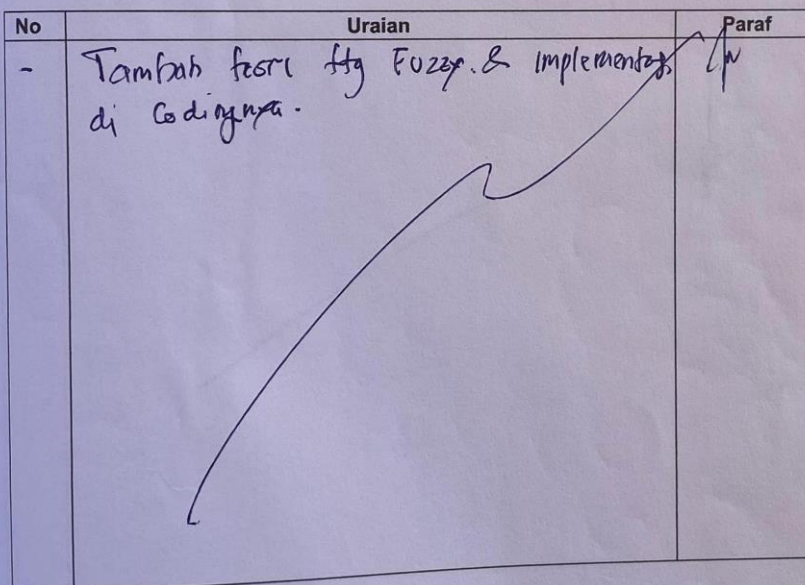 No Uraian Paraf
- Tambah teori ttg Fuzzy. & implementasi
di Codingnya.